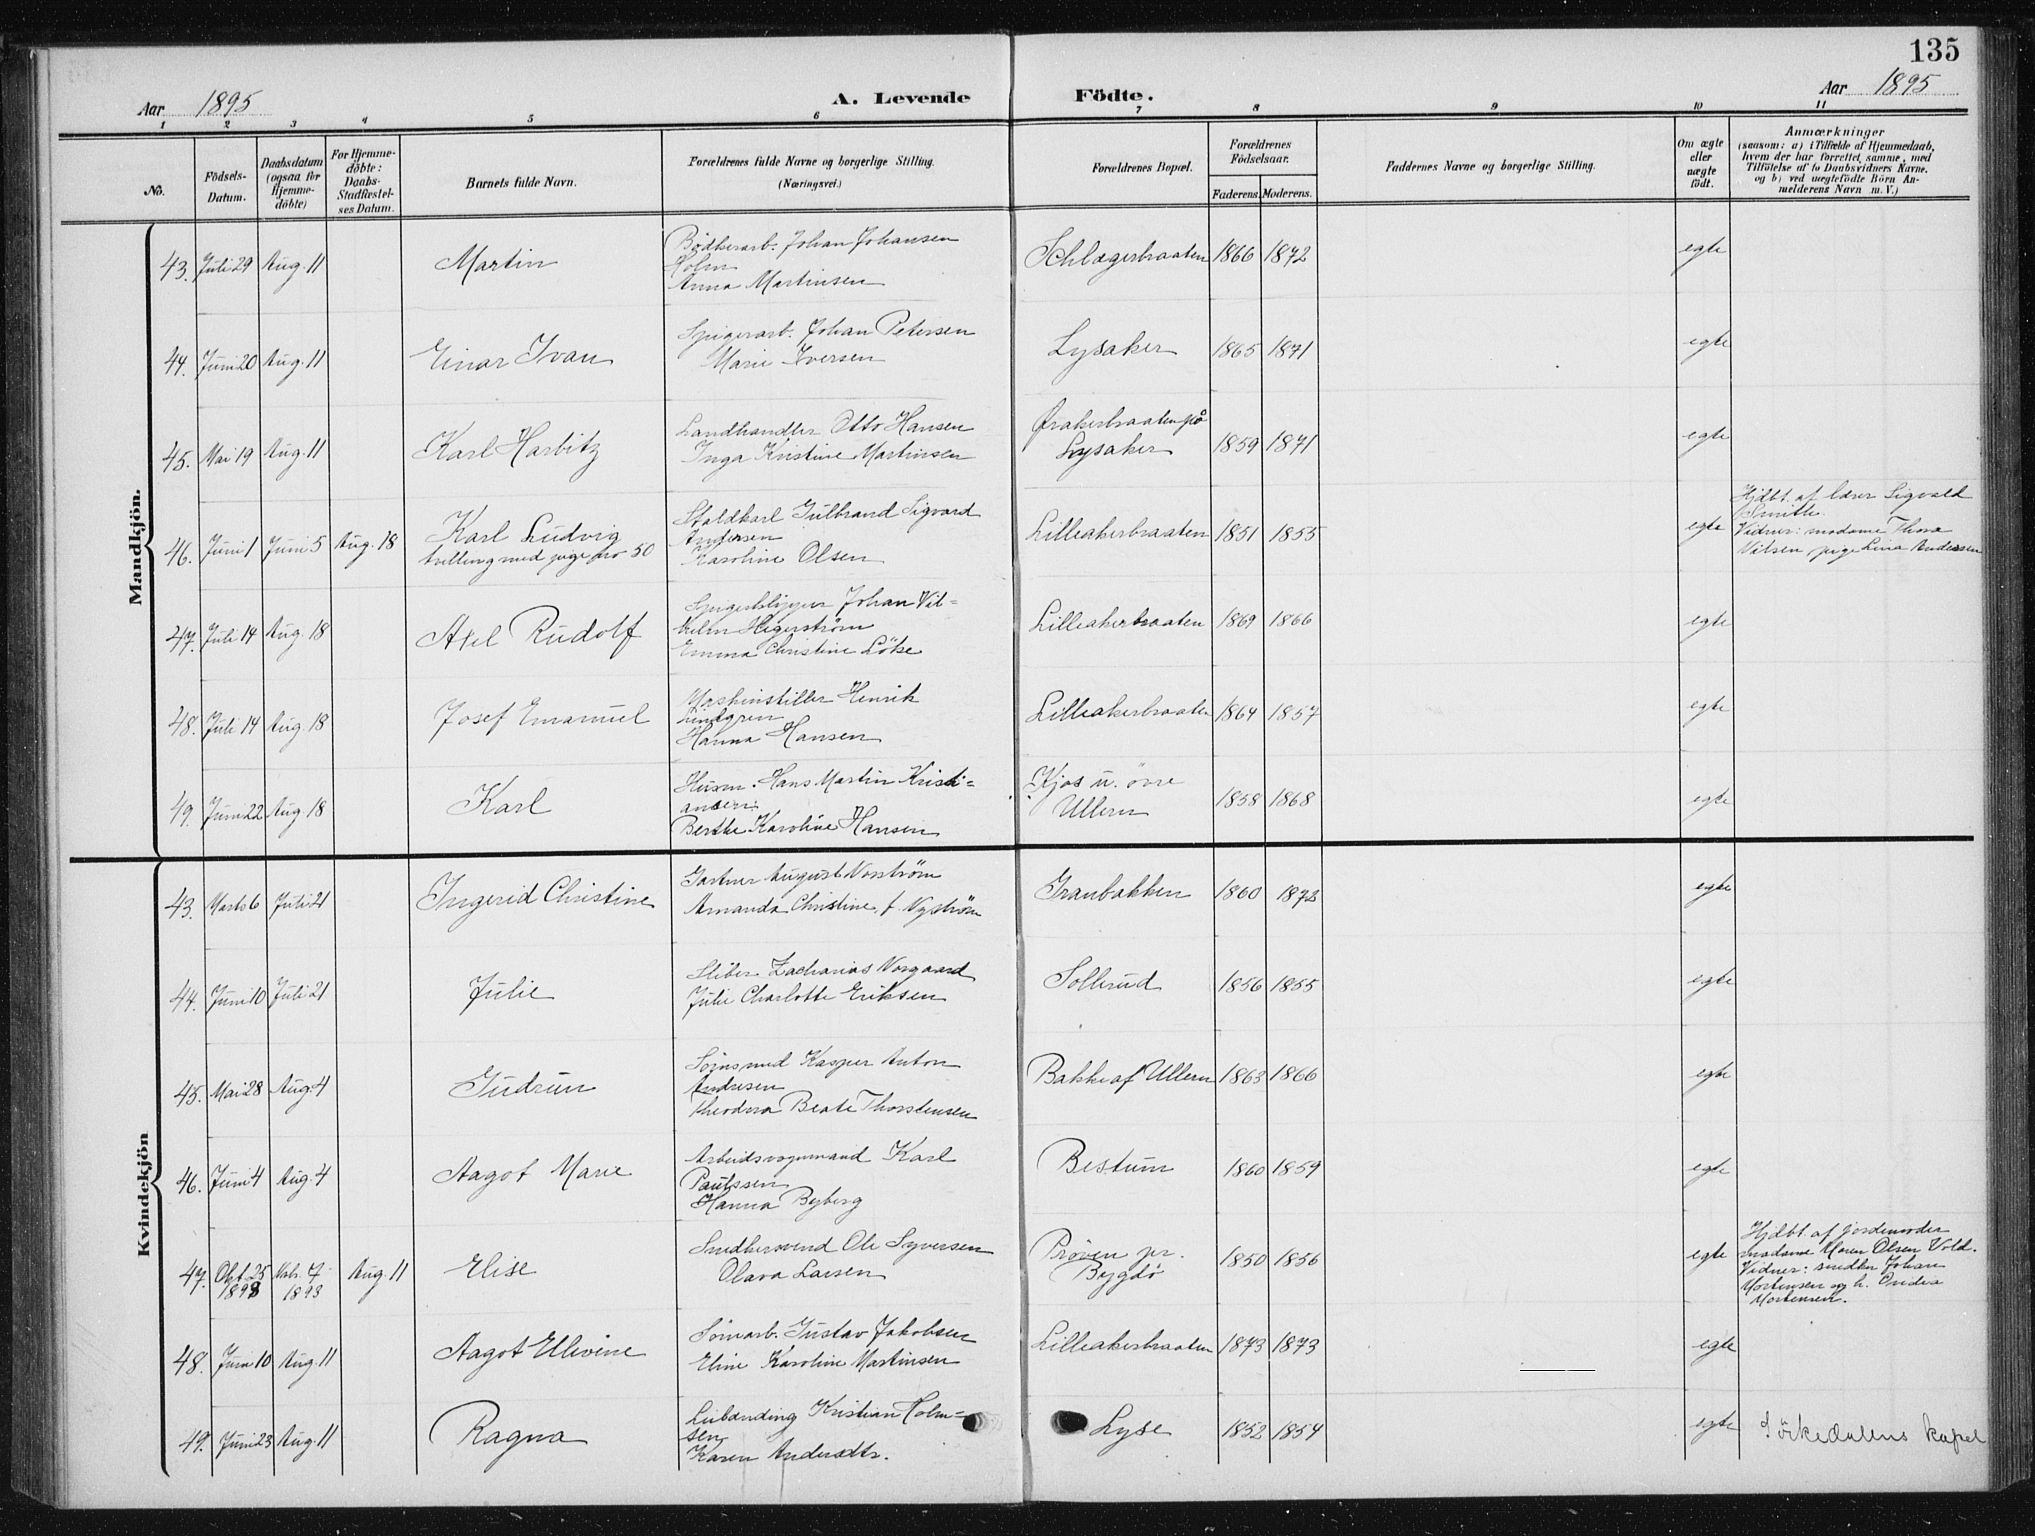 135
Aar 1895
A. Levende Födte.
Aar 1895
1 2 3 4 5 6 7 8 9 10 11
No.
Födsels-
Datum.
Daabsdatum
(ogsaa for
Hjemme-
döbte)
For Hjemme-
döbte:
Daabs-
Stadfæstel-
ses Datum.
Barnets fulde Navn.
Forældrenes fulde Navne og borgerlige Stilling.
(Næringsvei.)
Forældrenes Bopæl.
Forældrenes
Födselsaar.
Faderens. Moderens.
Faddernes Navne og borgerlige Stilling.
Om ægte
eller
uægte
födt.
Anmærkninger
(saasom: a) i Tilfælde af Hjemmedaab,
hvem der har forrettet samme, med
Tilföielse af to Daabsvidners Navne.
og b) ved uægtefödte Börn An-
melderens Navn m. V.)
Mandkjön.
43. Juli 29 Aug. 11 Martin
Bødkerarb. Johan Johansen
Holm
Anna Martinsen
Schlægerbraaten 1866 1872 egte
44. Juni 20 Aug. 11 Einar Ivan
Spigerarb. Johan Petersen
Marie Iversen
Lysaker 1865 1871 egte
45. Mai 19 Aug. 11 Karl Harbitz
Landhandler Otto Hansen
Inga Kristine Martinsen
Ørakerbraaten på
Lysaker 1859 1871 egte
46. Juni 1 Juni 5 Aug. 18 Karl Ludvig
tvilling med pige no 50
Staldkarl Gulbrand Sigvard
Andersen
Karoline Olsen
Lilleakerbraaten 1851 1855 egte
Hjdbt. af lærer Sigvald
Smith.
Vidner: madame Thora
Nilsen, pige Lina Andersen
47. Juli 14 Aug. 18 Axel Rudolf
Spigerklipper Johan Vil-
helm Hegerstrøm
Emma Christine Löke
Lilleakerbraaten 1869 1866 egte
48. Juli 14 Aug. 18 Josef Emanuel
Maskinstiller Henrik
Lindgren
Hanna Hansen
Lilleakerbraaten 1864 1857 egte
49. Juni 22 Aug. 18 Karl
Husm. Hans Martin Kristi-
ansen
Berthe Karoline Hansen
Kjos u. övre
Ullern 1858 1868 egte
Kvindekjön
43. Marts 6 Juli 21 Ingerid Christine
Gartner August Norström
Amanda Christine f. Nyström
Granbakken 1860 1872 egte
44. Juni 10 Juli 21 Julie
Sliber Zacharias Norgaard
Julie Charlotte Eriksen
Sollerud 1856 1855 egte
45. Mai 28 Aug. 4 Gudrun
Sömsmed Kasper Anton
Andresen
Theodora Beate Thorstensen
Bakke af Ullern 1863 1866 egte
46. Juni 4 Aug. 4 Aagot Marie
Arbeidsvognmand Karl
Paulssen
Hanna Byberg
Bestum 1860 1859 egte
47. Okt. 25
1893
1893 Aug. 11 Elise
Snedkersvend Ole Syversen
Olava Larsen
Prøven pr.
Bygdö 1850 1856 egte
Hjdbt. af jordemoder
madame Maren Olsen Vold.
Vidner: snedker Johan
Mortensen og h.
Mortensen.
48. Juni 10 Aug. 11 Aagot Elivine
Sömarb. Gustav Jakobsen
Eline Karoline Martinsen
Lilleakerbraaten 1873 1873 egte
49. Juni 23 Aug. 11 Ragna
Leilænding Kristian Holm-
sen
Karen Andersdtr.
Lyse 1852 1854 egte
Sörkedalens kapel